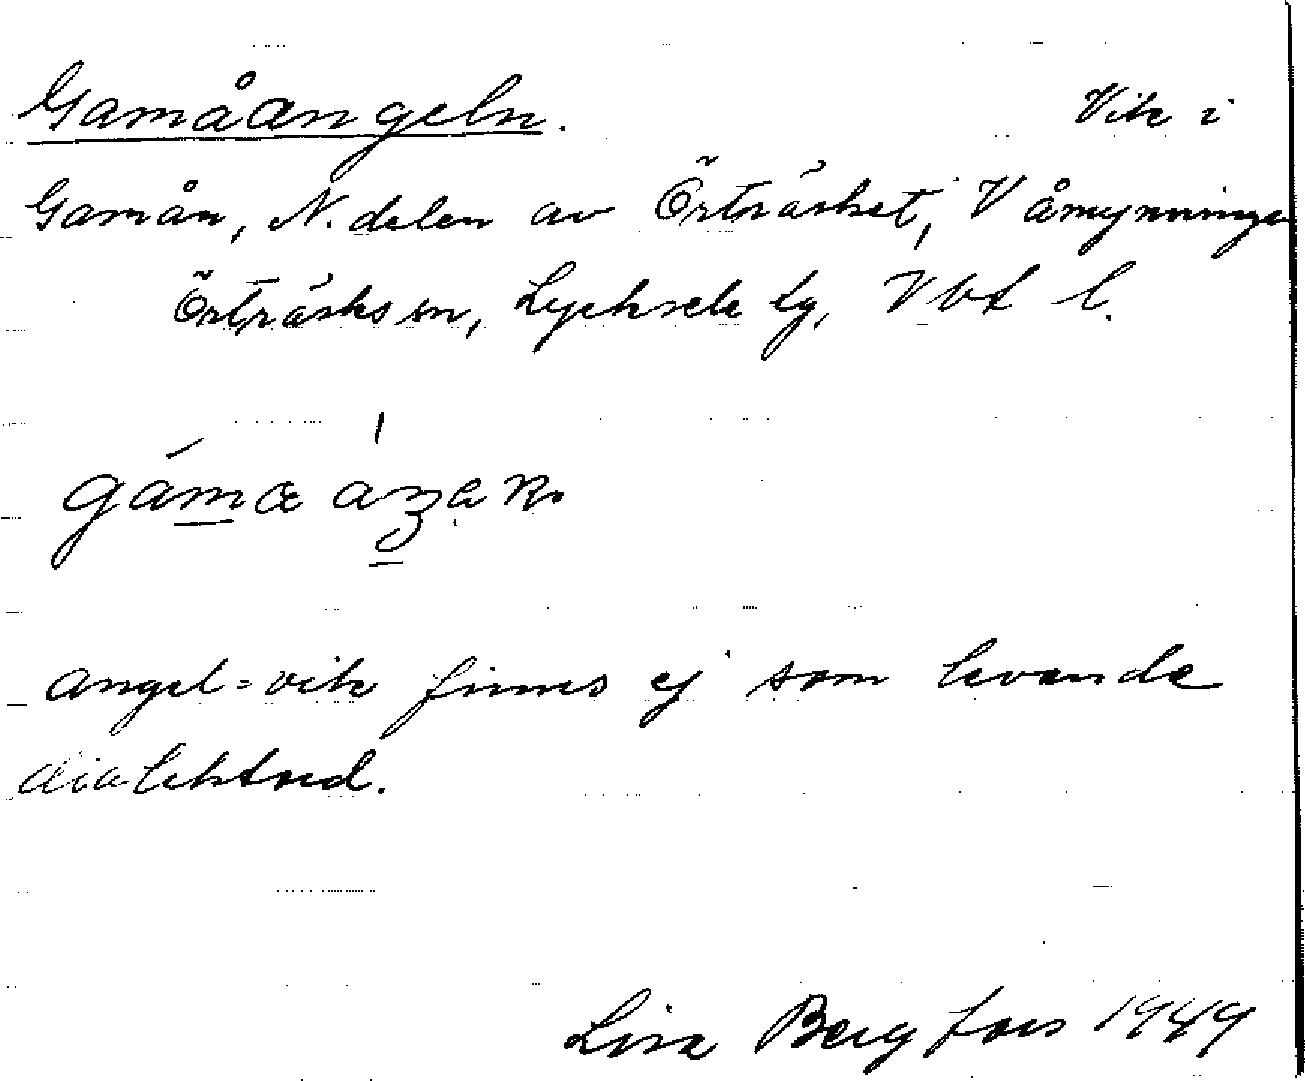 Gamåangeln. Vik i
Gamån, N. delen av Örträsket, V åmynningen
Örträsks sn, Lycksele lg, Vbt l.
angel = vik finnes ej som levande
dialektord.
Lisa Bergfors 1949